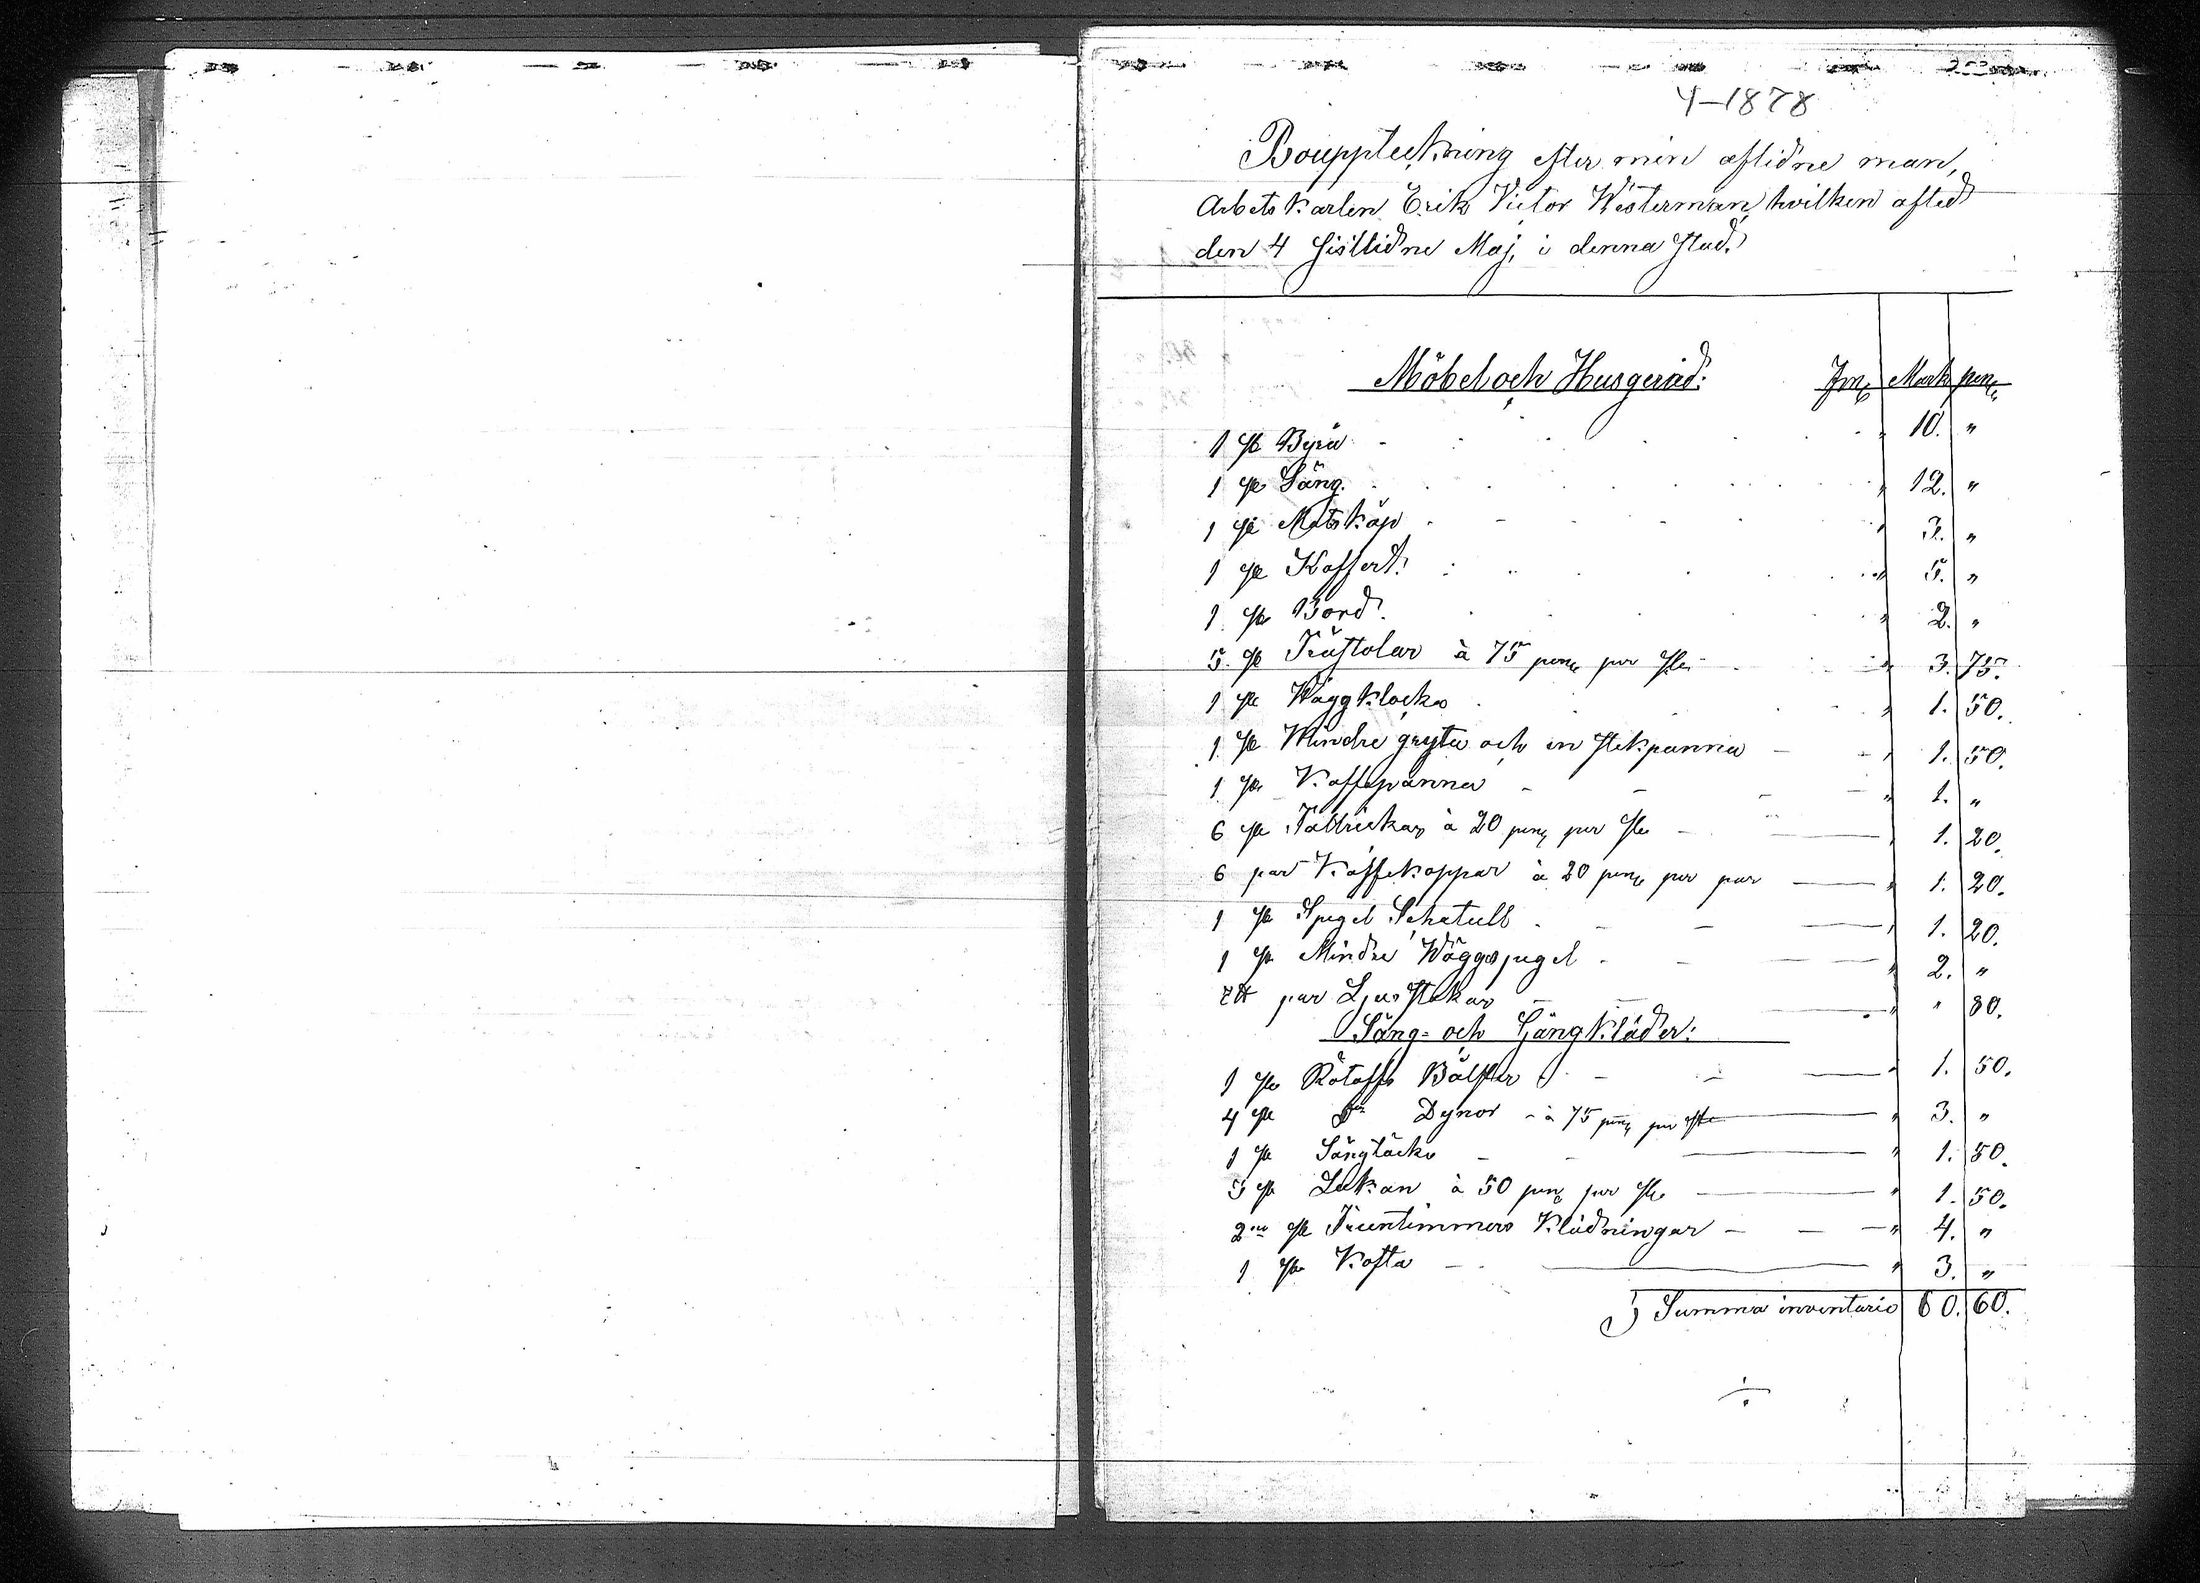 4-1878
Bouppteckning efter min aflidne man,
Arbetskarlen Erik Victor Westerman, hvilken afled
den 4 sistlidne Maj, i denna stad.
Möbel och Husgeråd: Fmk Mark penn
1 st Byrå " 10. "
1 st Säng. " 12. "
1 st Matskåp " 3. "
1 st Koffert. " 5. "
1 st Bord. " 2. "
5. st Trästolar à 75 penn per st " 3. 75.
1 st Wäggklocka " 1. 50.
1 st Mindre gryta och en stekpanna " 1. 50.
1 st Kaffepanna " 1. "
6 st Tallrickar à 20 penn per st " 1. 20.
6 par Kaffekoppar à 20 penn per par " 1. 20.
1 st Spegel Schatull " 1. 20.
1 st Mindre Wäggspegel " 2. "
par Ljusstakar " " 80.
Säng- och Gångkläder:
1 st Bolster " 1. 50.
4 st Dynor à 75 penn per st " 3. "
1 st Sängtäcke " 1. 50.
3 st Lakan à 50 penn per st " 1. 50.
2ne st Fruentimmers Klädningar " 4. "
1 st Kofta " 3. "
Summa inventario 60. 60.